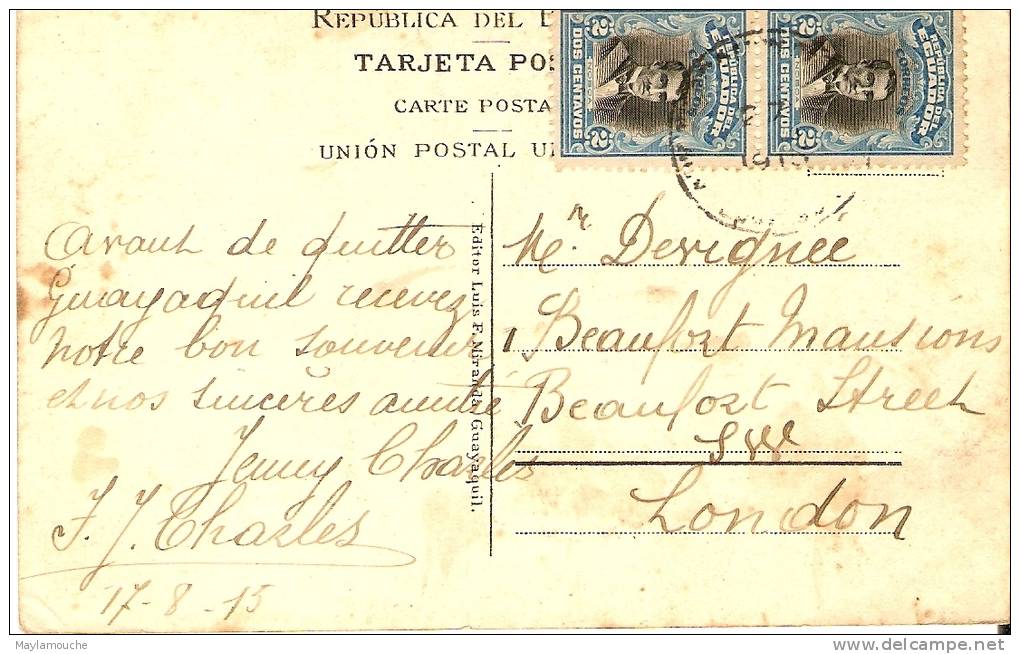 REPUBLICA DEL
TARJETA POS
CARTE POSTA
UNIÓN POSTAL U
REPUBLICA DEL
ECUADOR
CORREOS
2 DOS CENTAVOS 2
REPUBLICA DEL
ECUADOR
CORREOS
2 DOS CENTAVOS 2
Avant de quitter
Guayaquil recevez
notre bon souvenir
et nos sincères amitié
Jenny Charles
F. J. Charles
17-8-15
Editor Luis F. Miranda, Guayaquil.
Mr Devignée
1 Beaufort Mansions
Beaufort Street
SW
London
Maylamouche
www.delcampe.net